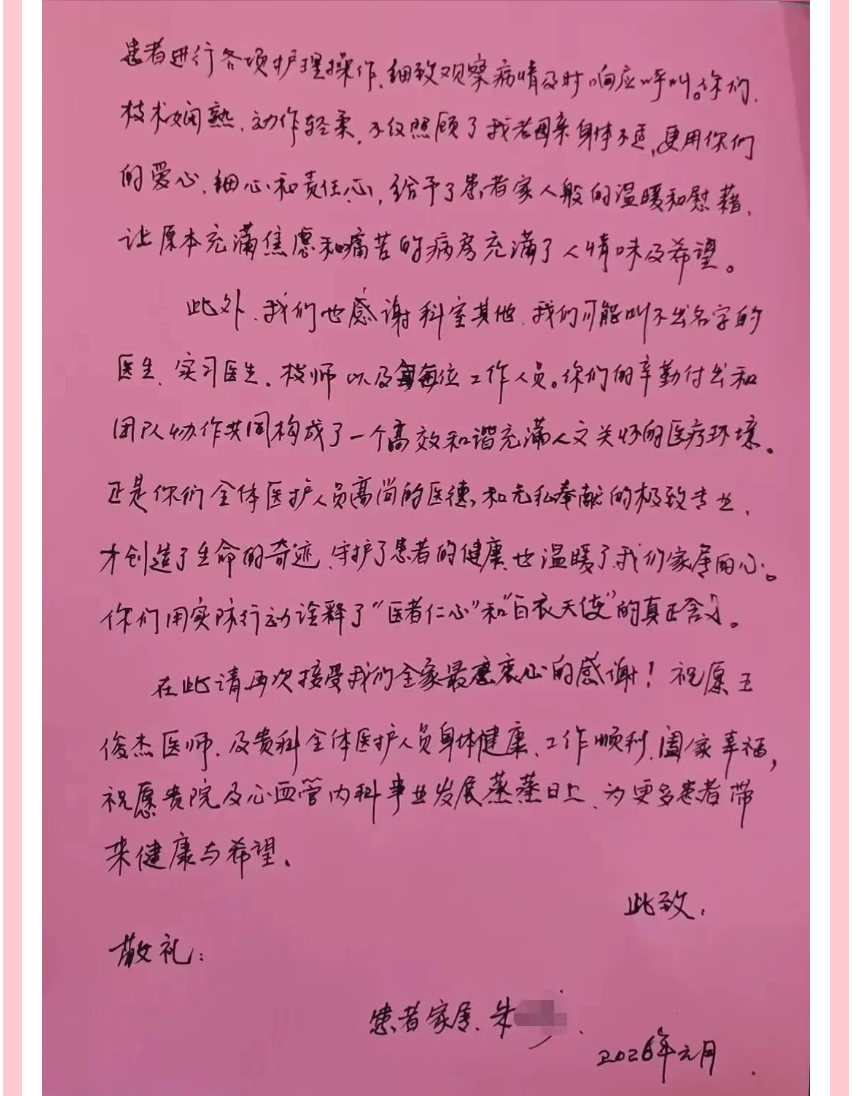 患者进行各项护理操作、细致观察病情及时响应呼叫。你们
技术娴熟、动作轻柔，不仅照顾了我老母亲身体不适，更用你们
的爱心、细心和责任心，给予了患者家人般的温暖和慰藉，
让原本充满焦虑和痛苦的病房充满了人情味及希望。
此外、我们也感谢科室其他、我们可能叫不出名字的
医生、实习医生、技师以及每位工作人员。你们的辛勤付出和
团队协作共同构成了一个高效和谐充满人文关怀的医疗环境。
正是你们全体医护人员高尚的医德、和无私奉献的极致专业，
才创造了生命的奇迹、守护了患者的健康、也温暖了我们家属的心。
你们用实际行动诠释了“医者仁心”和“白衣天使”的真正含义。
在此请再次接受我们全家最衷心的感谢！祝愿王
俊杰医师、及贵科全体医护人员身体健康、工作顺利、阖家幸福，
祝愿贵院及心血管内科事业发展蒸蒸日上、为更多患者带
来健康与希望。
此致，
敬礼：
患者家属、朱
2026年元月